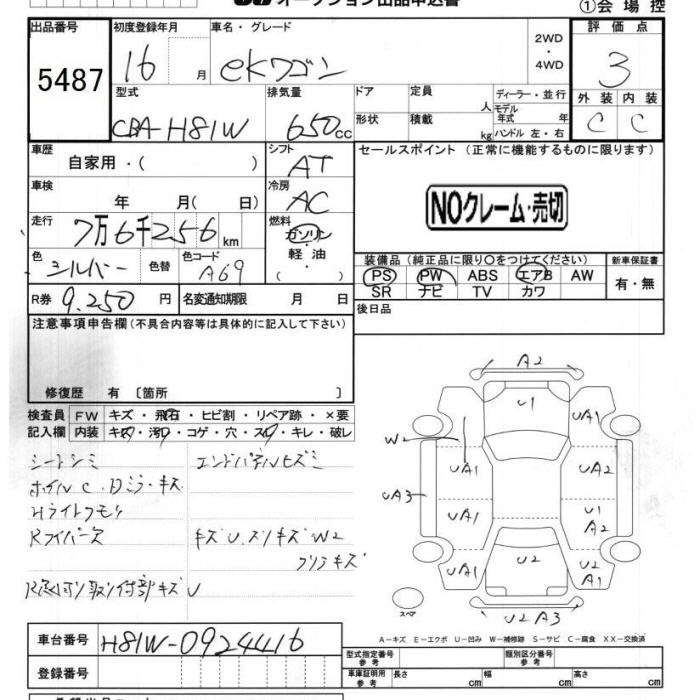 オークション出品申込書
①会場控
出品番号 初度登録年月 車名・グレード 2WD・4WD 評価点
5487 16月 eKワゴン 3
型式 排気量 ドア 定員 人 ディーラー・並行 外装 内装
CBA-H81W 650cc 形状 積載 kg モデル年式 年 ハンドル 左・右 C C
車歴 シフト セールスポイント(正常に機能するものに限ります)
自家用・( ) AT
車検 冷房
年 月( 日) AC NOクレーム・売切
走行 燃料
7万6千256km ガソリン・軽油・
色 色替 色コード 装備品(純正品に限り○をつけてください) 新車保証書
シルバー A69 PS PW ABS エアB AW 有・無
R券 9.250円 名変通知期限 月 日 SR ナビ TV カワ
注意事項申告欄(不具合内容等は具体的に記入して下さい) 後日品
修復歴 有 〔箇所 〕
検査員 FW キズ・飛石・ヒビ割・リペア跡・×要
記入欄 内装 キズ・汚れ・コゲ・穴・スレ・キレ・破レ
シートシミ エンドパネルヒズミ
ホイルC.Dミラーキズ
Hライトクモリ
Rワイパー欠 キズU.スリキズW2
ガラスキズ
取付部キズU
A2
U1
UA1 UA1
W2
UA1 UA2
UA3
UA1 U1 A2
UA1 U2 U2 A1
スペア
U2 A3
A-キズ E-エクボ U-凹み W-補修跡 S-サビ C-腐食 XX-交換済
車台番号 H81W-0924416
型式指定番号 参考 類別区分番号 参考
登録番号 車庫証明用 参考 長さ cm 幅 cm 高さ cm